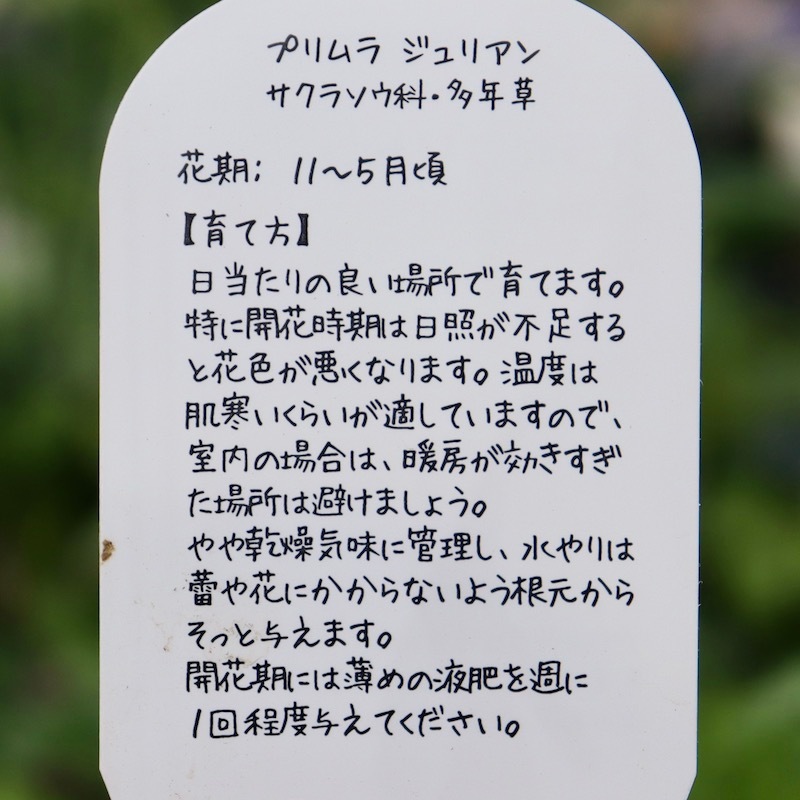 プリムラ ジュリアン
サクラソウ科・多年草
花期; 11〜5月頃
【育て方】
日当たりの良い場所で育てます。
特に開花時期は日照が不足する
と花色が悪くなります。温度は
肌寒いくらいが適していますので、
室内の場合は、暖房が効きすぎ
た場所は避けましょう。
やや乾燥気味に管理し、水やりは
蕾や花にかからないよう根元から
そっと与えます。
開花期には薄めの液肥を週に
1回程度与えてください。